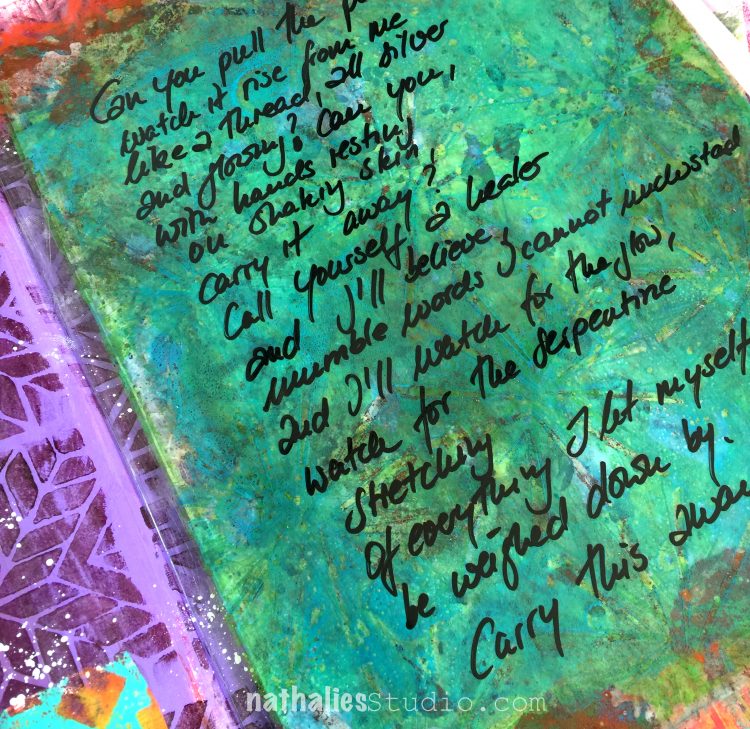 Can you pull the
watch it rise from me
like a thread, all silver
and glowing? Can you,
with hands resting
on shaking skin
carry it away?
Call yourself a healer
and I'll believe,
mumble words I cannot understad
and I'll watch for the glow,
watch for the serpentine
stretching
Of everything I let myself
be weighed down by.
Carry this away
nathaliesstudio.com